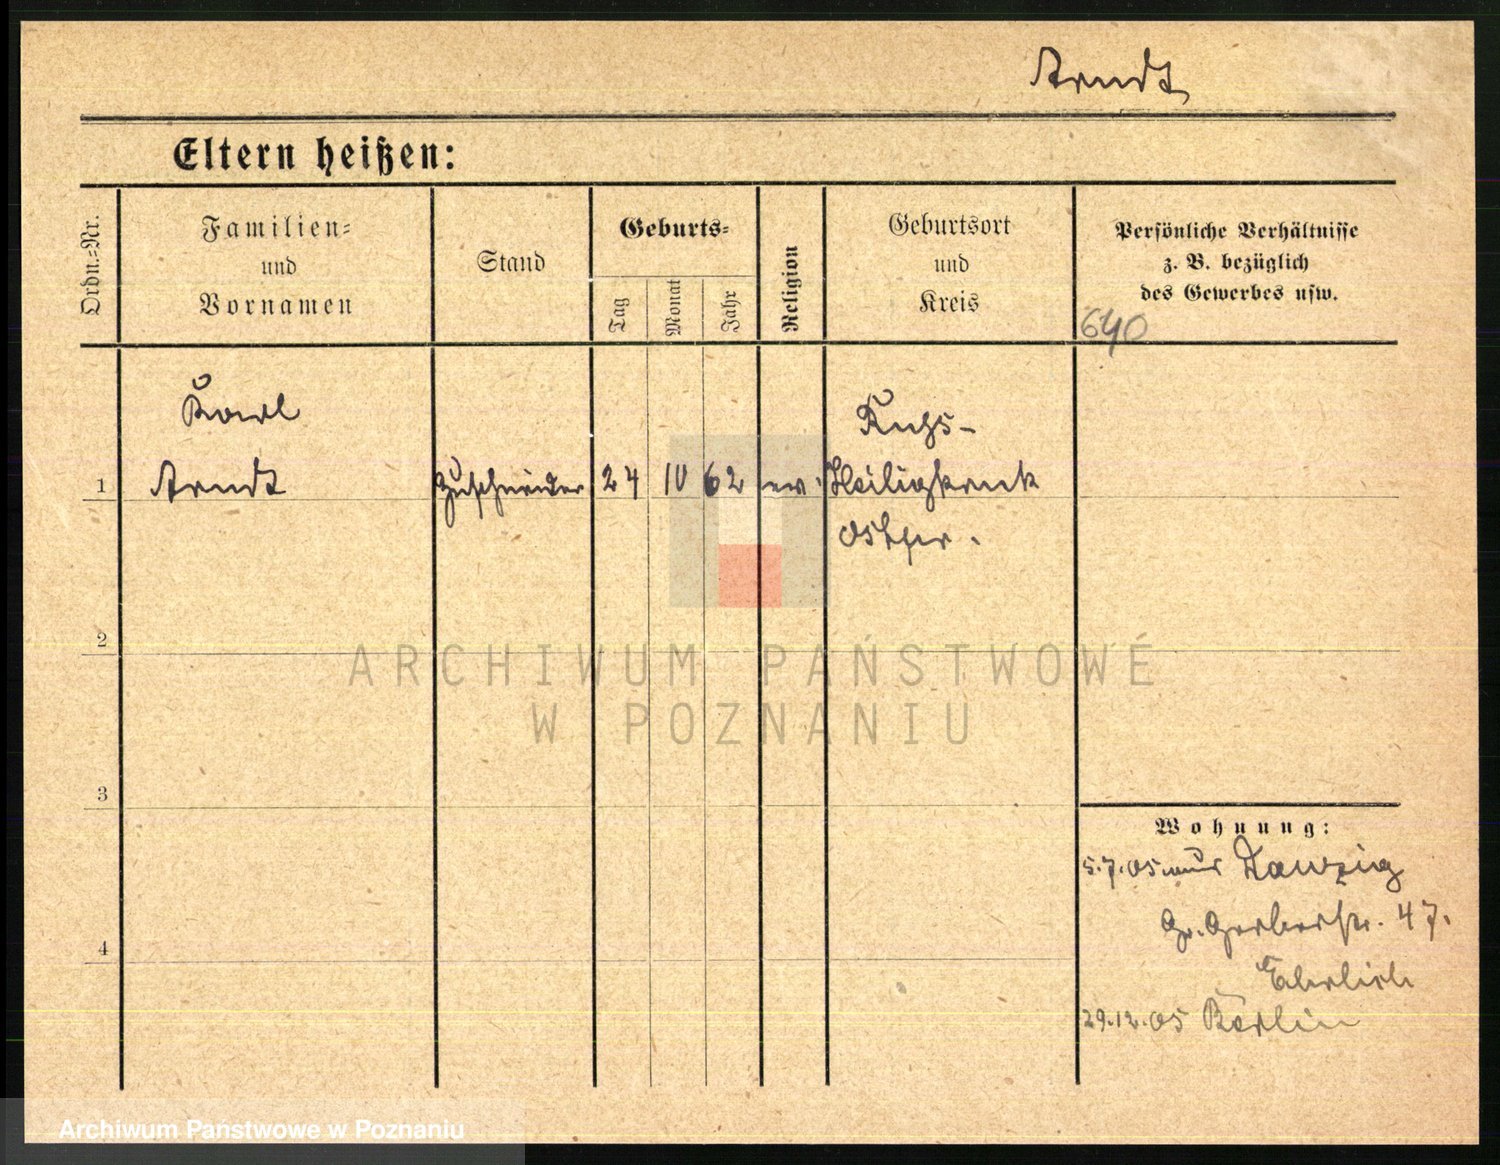 Arndt
Eltern heißen:
Ordn.-Nr.
Familien-
und
Vornamen
Stand
Geburts-
Tag
Monat
Jahr
Religion
Geburtsort
und
Kreis
Persönliche Verhältnisse
z. B. bezüglich
des Gewerbes usw.
640
Karl
1 Arndt Zuschneider 24 10 62 ev.
Ostpr.
2
3
4
Wohnung:
5.7.05 aus Danzig
Gr. Gerberstr. 47.
Ehrlich
29.12.05 Berlin
ARCHIWUM PAŃSTWOWE
W POZNANIU
Archiwum Państwowe w Poznaniu